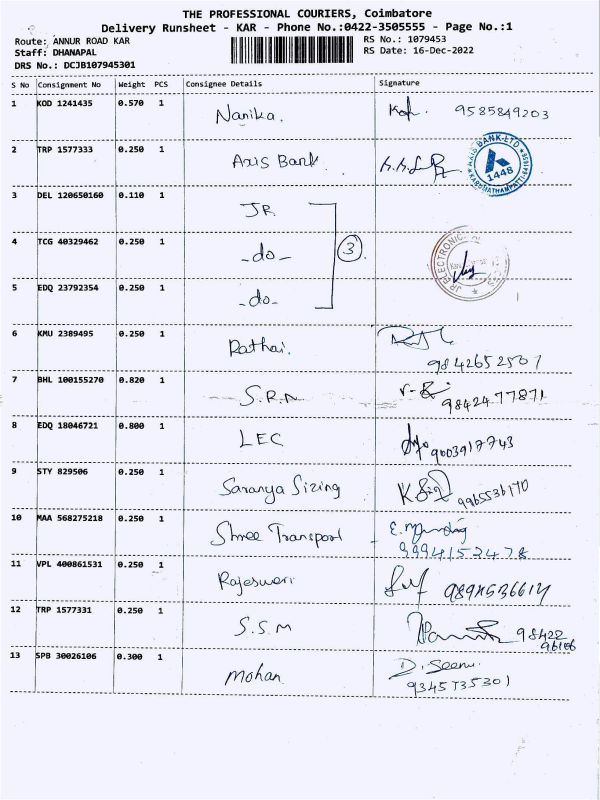 THE PROFESSIONAL COURIERS, Coimbatore
Delivery Runsheet - KAR - Phone No.:0422-3505555 - Page No.:1
Route: ANNUR ROAD KAR RS No.: 1079453
Staff: DHANAPAL RS Date: 16-Dec-2022
DRS No.: DCJB107945301
S No Consignment No Weight PCS Consignee Details Signature
1 KOD 1241435 0.570 1 Nanika. 9585849203
2 TRP 1577333 0.250 1 Axis Bank BANK-LTD 1448
3 DEL 120650160 0.110 1 JR
4 TCG 40329462 0.250 1 -do- 3 JP ELECTRONIC
5 EDQ 23792354 0.250 1 -do-
6 KMU 2389495 0.250 1 Rathai.
9842652507
7 BHL 100155270 0.820 1 S.R.N 9842477871
8 EDQ 18046721 0.800 1 LEC 9003917743
9 STY 829506 0.250 1 Saranya Sizing 9965536170
10 MAA 568275218 0.250 1 Shree Transport
9994153478
11 VPL 400861531 0.250 1 Rajeswari
12 TRP 1577331 0.250 1 S.S.M 98422
96106
13 SPB 30026106 0.300 1 Mohan D. Seenu
9345735301